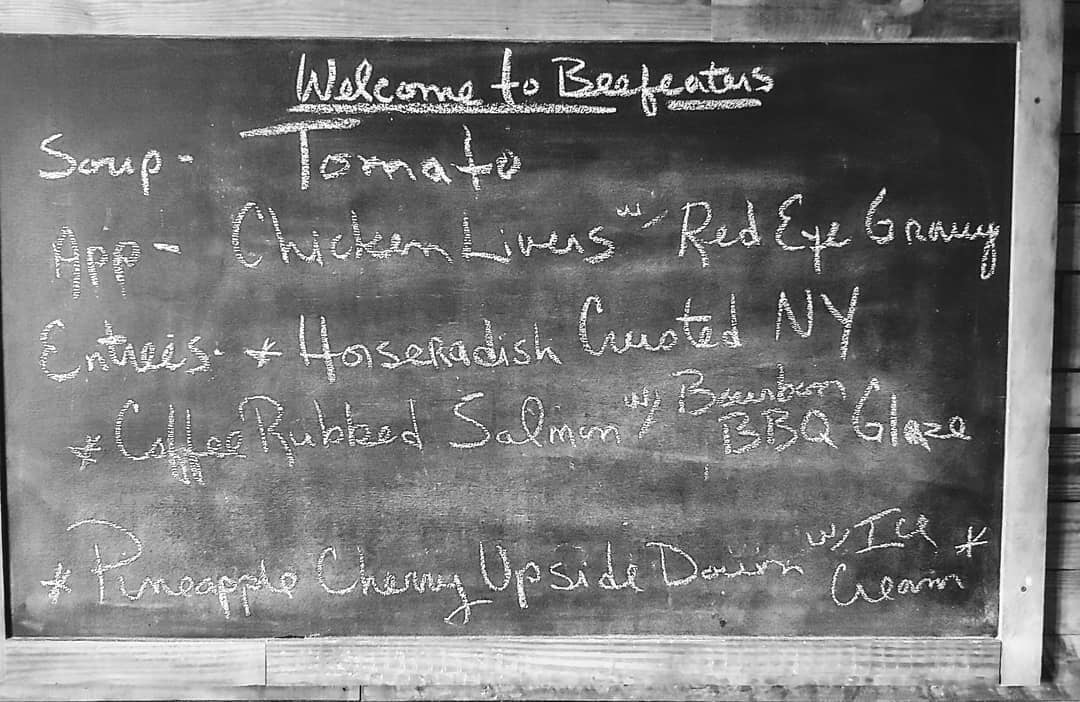 Welcome to Beefeaters
Soup- Tomato
App- Chicken Livers w/ Red Eye Gravy
Entrees- * Horseradish Crusted NY
* Coffee Rubbed Salmon w/ Bourbon BBQ Glaze
* Pineapple Cherry Upside Down w/ Ice Cream *